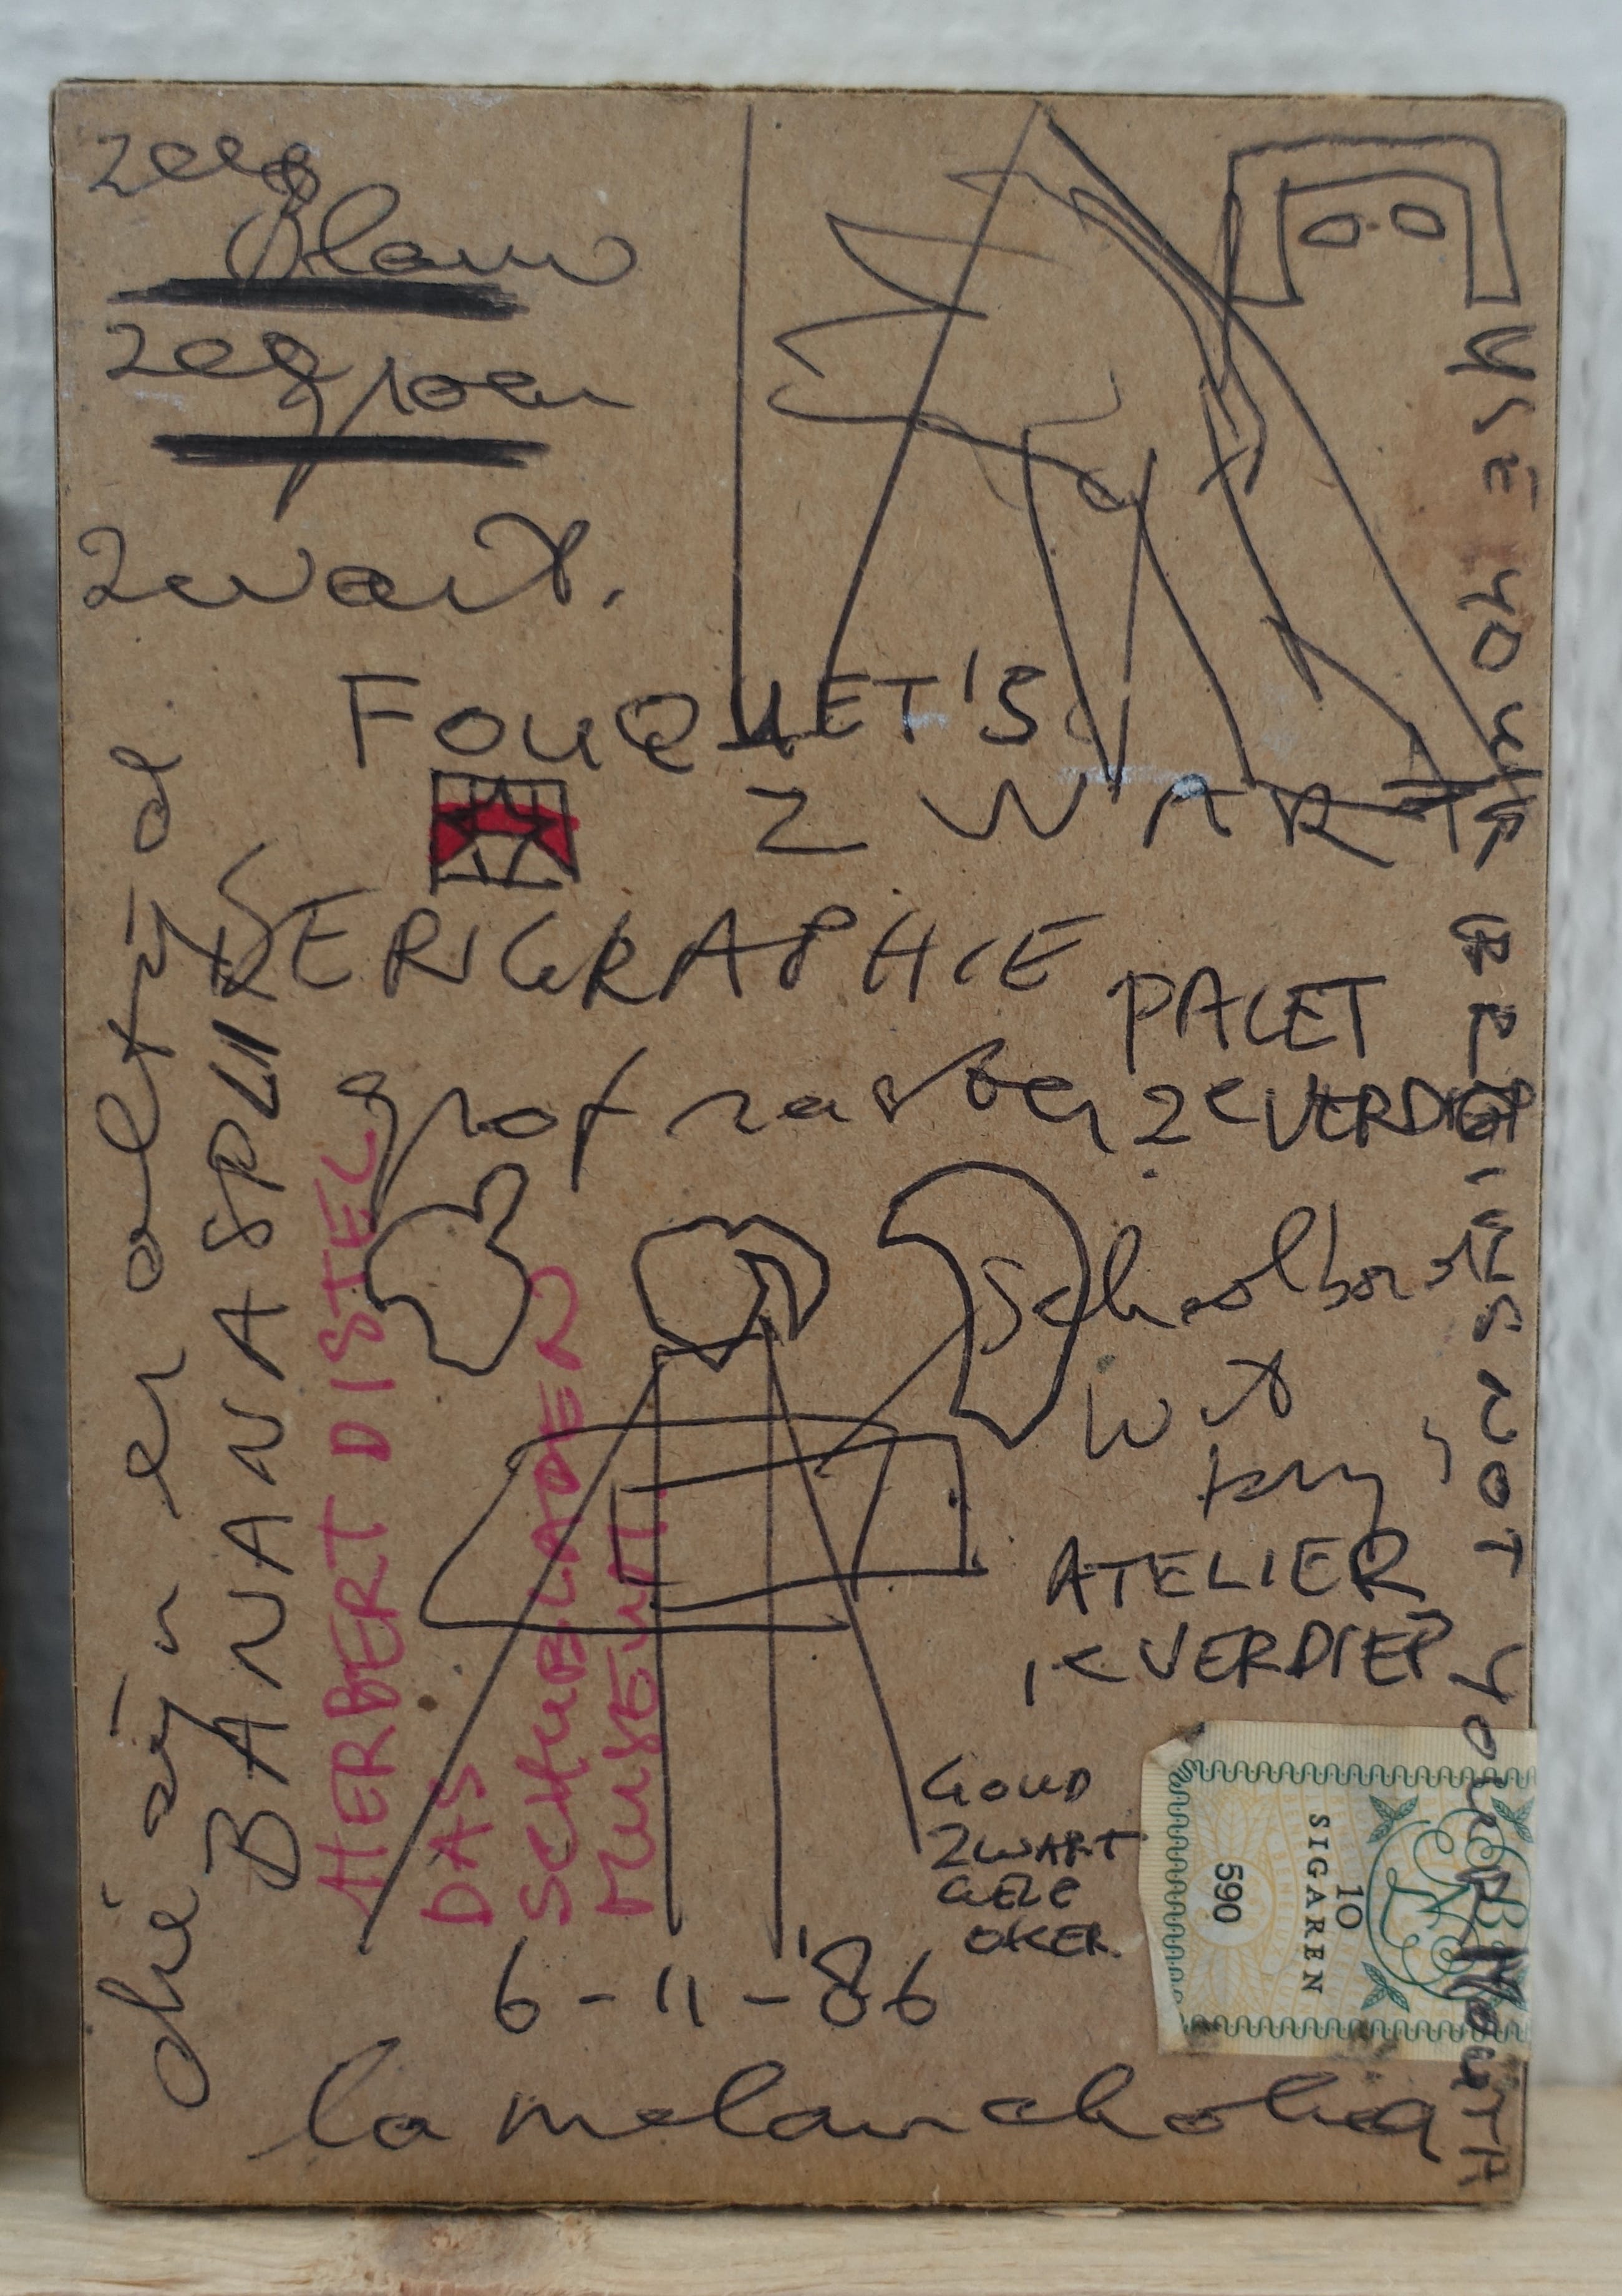 zee
blauw
zeegroen
zwart.
FOUQUET'S
ZWART
SERIGRAPHIE
PALET
grof raster
2e VERDIEP
Schoolbord
wit
krijt
ATELIER
1e VERDIEP
GOUD
ZWART
GELE
OKER.
6-11-'86
la melancholia
die zijn er altijd
BANANASPLIT
HERBERT DISTEL
DAS
SCHUBLADEN
MUSEUM.
USE YOUR BRAINS NOT YOUR MOUTH
10
SIGAREN
590